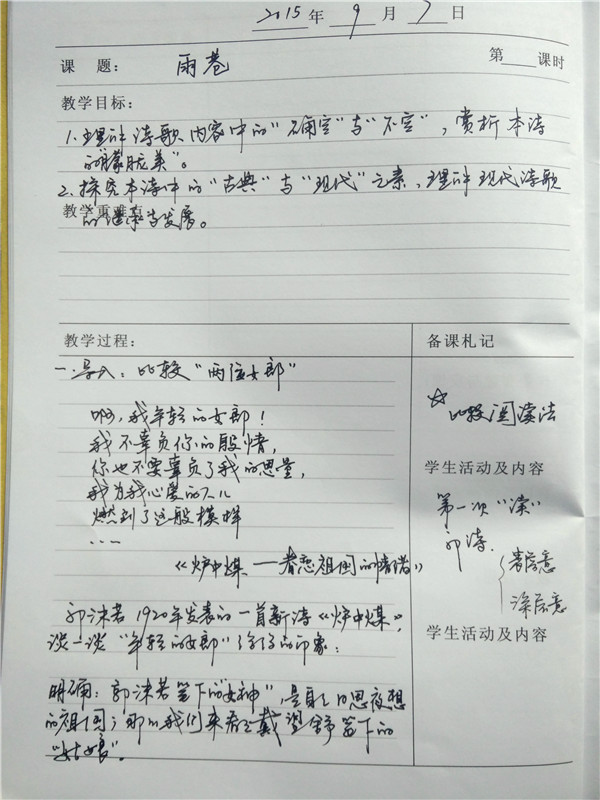 2015年 9 月 7 日
课 题： 雨巷 第 课时
教学目标：
1.理解诗歌内容中的“确定”与“不定”，赏析本诗
的“朦胧美”。
2.探究本诗中的“古典”与“现代”元素，理解现代诗歌
教学重难点
的继承与发展。
教学过程：
一.导入：比较“两位女郎”
啊，我年轻的女郎！
我不辜负你的殷情，
你也不要辜负了我的思量，
我为我心爱的人儿
燃到了这般模样
……
《炉中煤——眷恋祖国的情绪》
郭沫若1920年发表的一首新诗《炉中煤》，
谈一谈“年轻的女郎”给你的印象：
明确：郭沫若笔下的“女神”，是自己日思夜想
的祖国；那么我们来看看戴望舒笔下的
“姑娘”。
备课札记
☆比较阅读法
学生活动及内容
第一次“读”
郭诗.
表层意
深层意
学生活动及内容